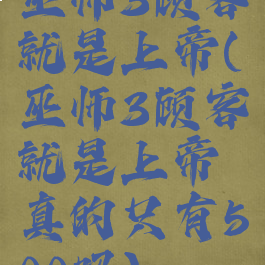 巫师3顾客
就是上帝(
巫师3顾客
就是上帝
真的只有5
00吗)